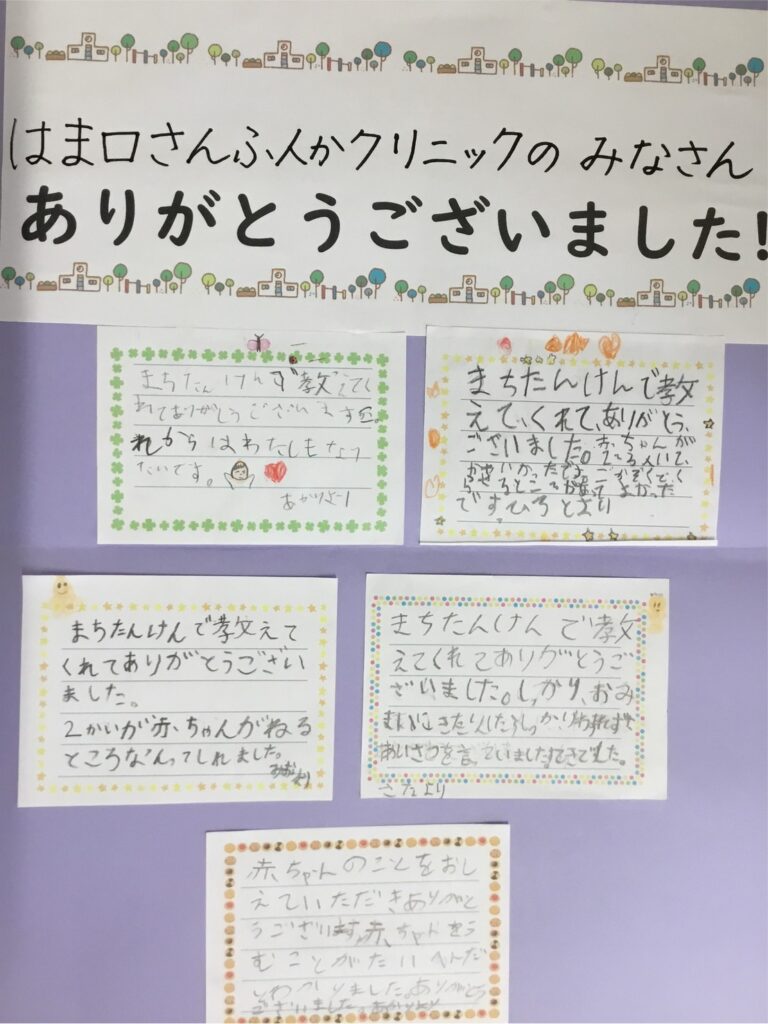 はま口さんふ人かクリニックの みなさん
ありがとうございました!
まちたんけんで教えてく
れてありがとうございます。こ
れからはわたしもなっ
たいです。
あかりより
まちたんけんで教
えて、くれて、ありがとう、
ございました。赤ちゃんが
ところ
ですひろとより
まちたんけんで教えて
くれてありがとうござい
ました。
2かいが赤ちゃんがねる
ところなんてしれました。
みおより
まちたんけんで教
えてくれてありがとうご
ざいました。しっかり、おみ
まいにきたりしたらしっかりわすれずに
あいさつを言っていましたすてきでした。
こたより
赤ちゃんのことをおし
えていただきありがと
うございます。赤ちゃんをう
むことがたいへんだ
とわかりました。ありがとう
ございました。あかりより